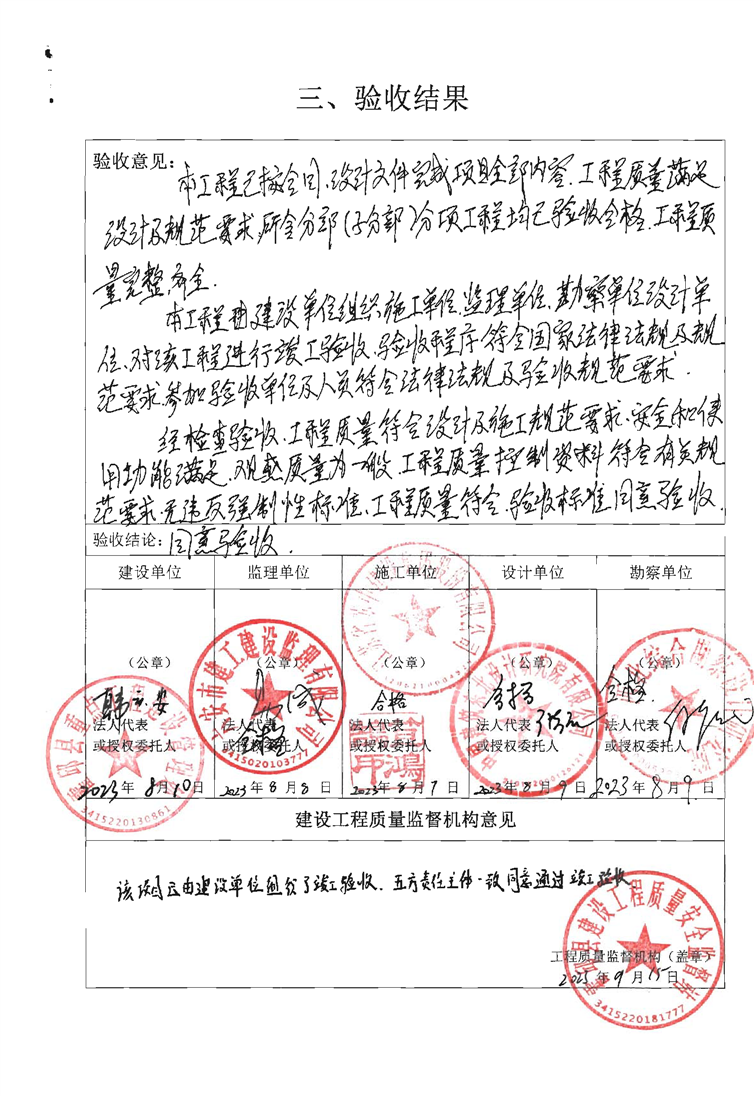 三、验收结果
验收意见：
本工程已按合同、设计文件完成项目全部内容．工程质量满足
设计及规范要求，所含分部（子分部）分项工程均已验收合格．工程质
量完整齐全．
本工程由建设单位组织施工单位、监理单位、勘察单位设计单
位、对该工程进行竣工验收、验收程序符合国家法律法规及规
范要求．参加验收单位及人员符合法律法规及验收规范要求．
经检查验收、工程质量符合设计及施工规范要求、安全和使
用功能满足．观感质量为一般．工程质量控制资料符合有关规
范要求．无违反强制性标准、工程质量符合验收标准．同意验收．
验收结论：同意验收．
建设单位 监理单位 施工单位 设计单位 勘察单位
（公章） （公章） （公章） （公章） （公章）
合格 合格 合格
法人代表 法人代表 法人代表 法人代表 法人代表
或授权委托人 或授权委托人 或授权委托人 或授权委托人 或授权委托人
合格
2023年8月10日 2023年8月8日 2023年8月7日 2023年8月9日 2023年8月9日
市建工建设监理有限公司
415020103777
3415220130861
建设工程质量监督机构意见
该项目已由建设单位组织了竣工验收．五方责任主体一致同意通过竣工验收
工程质量监督机构（盖章）
2023年9月15日
县建设工程质量安全监督站
3415220181777